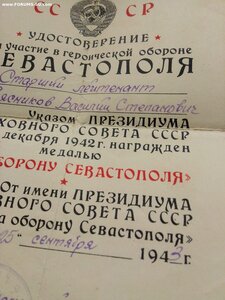 www.FORUMSAU.com
СС СР
УДОСТОВЕРЕНИЕ
участие в героической обороне
ЕВАСТОПОЛЯ
Старший лейтенант
Василий Степанович
Указом ПРЕЗИДИУМА
ХОВНОГО СОВЕТА СССР
декабря 1942 г. награжден
медалью
ОБОРОНУ СЕВАСТОПОЛЯ»
От имени ПРЕЗИДИУМА
ВНОГО СОВЕТА СССР
а оборону Севастополя»
25 сентября 1943 г.